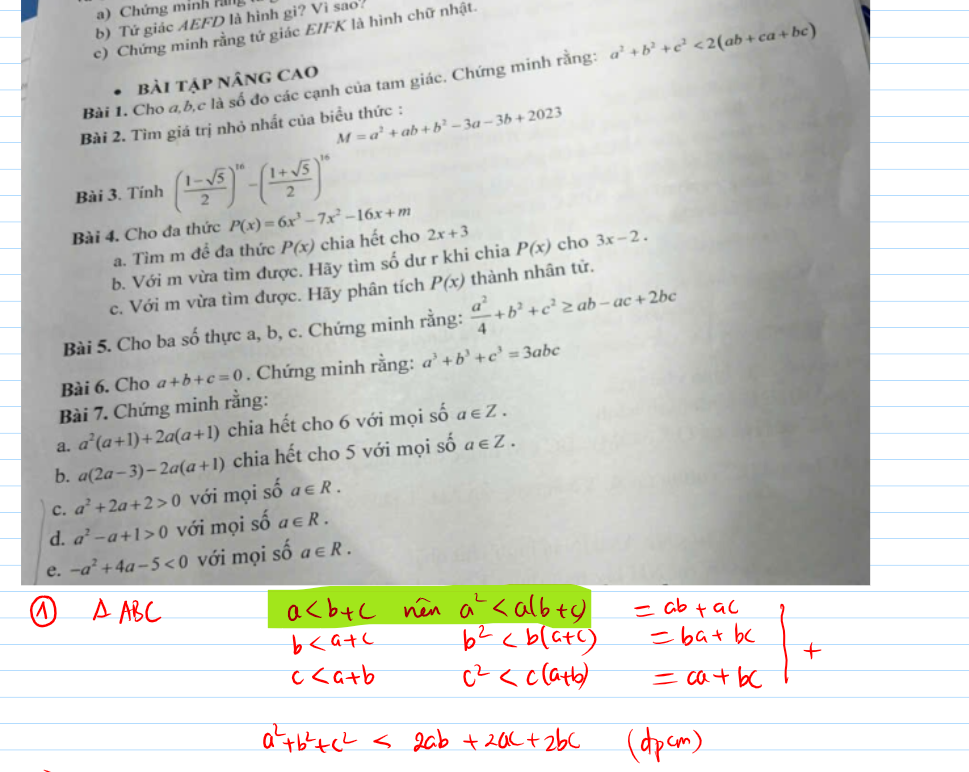 a) Chứng minh rằng
b) Tứ giác AEFD là hình gì? Vì sao?
c) Chứng minh rằng tứ giác EIFK là hình chữ nhật.
• BÀI TẬP NÂNG CAO
Bài 1. Cho a,b,c là số đo các cạnh của tam giác. Chứng minh rằng: a² + b² + c² < 2(ab + ca + bc)
Bài 2. Tìm giá trị nhỏ nhất của biểu thức :
M = a² + ab + b² − 3a − 3b + 2023
Bài 3. Tính ((1−√5)/2)^16 − ((1+√5)/2)^16
Bài 4. Cho đa thức P(x) = 6x³ − 7x² − 16x + m
a. Tìm m để đa thức P(x) chia hết cho 2x + 3
b. Với m vừa tìm được. Hãy tìm số dư r khi chia P(x) cho 3x − 2 .
c. Với m vừa tìm được. Hãy phân tích P(x) thành nhân tử.
Bài 5. Cho ba số thực a, b, c. Chứng minh rằng: a²/4 + b² + c² ≥ ab − ac + 2bc
Bài 6. Cho a + b + c = 0 . Chứng minh rằng: a³ + b³ + c³ = 3abc
Bài 7. Chứng minh rằng:
a. a²(a+1) + 2a(a+1) chia hết cho 6 với mọi số a ∈ Z .
b. a(2a−3) − 2a(a+1) chia hết cho 5 với mọi số a ∈ Z .
c. a² + 2a + 2 > 0 với mọi số a ∈ R .
d. a² − a + 1 > 0 với mọi số a ∈ R .
e. −a² + 4a − 5 < 0 với mọi số a ∈ R .
① Δ ABC a < b+c nên a² < a(b+c) = ab + ac
b < a+c b² < b(a+c) = ba + bc +
c < a+b c² < c(a+b) = ca + bc
a²+b²+c² < 2ab + 2ac + 2bc (đpcm)